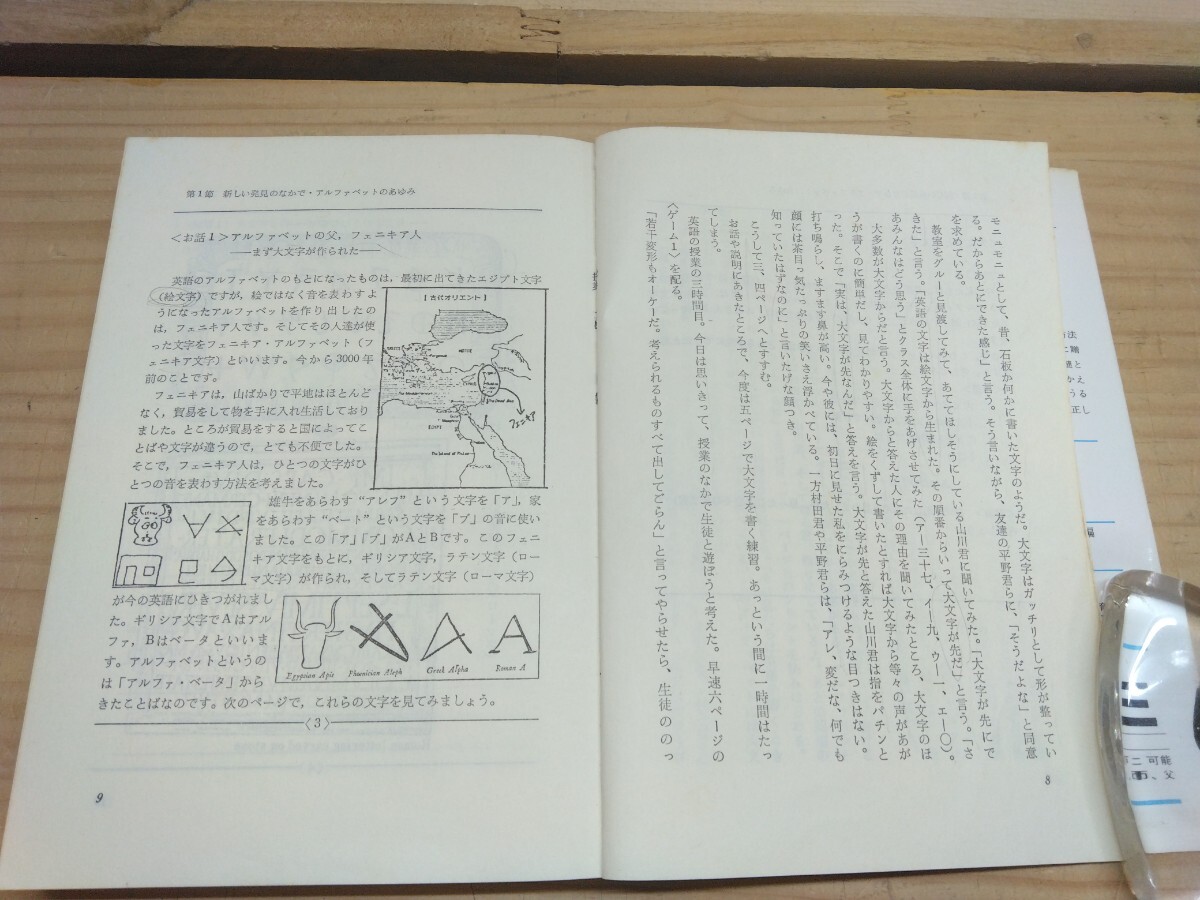 モニュモニュとして、昔、石板か何かに書いた文字のようだ。大文字はガッチリとして形が整ってい
る。だからあとにできた感じ」と言う。そう言いながら、友達の平野君らに、「そうだよな」と同意
を求めている。
教室をグルーと見渡してみて、あててほしそうにしている山川君に聞いてみた。「大文字が先にで
きた」と言う。「英語の文字は絵文字から生まれた。その順番からいって大文字が先だ」と言う。「さ
あみんなはどう思う」とクラス全体に手をあげさせてみた（ア―三十七、イ―九、ウ―一、エ―〇）。
大多数が大文字からだと言う。大文字からと答えた人にその理由を聞いてみたところ、大文字のほ
うが書くのに簡単だし、見てわかりやすい。絵をくずして書いたとすれば大文字から等々の声があが
った。そこで「実は、大文字が先なんだ」と答えを言う。大文字が先と答えた山川君は指をパチンと
打ち鳴らし、ますます鼻が高い。今や彼には、初日に見せた私をにらみつけるような目つきはない。
顔には茶目っ気たっぷりの笑いさえ浮かべている。一方村田君や平野君らは、「アレ、変だな、何でも
知っていたはずなのに」と言いたげな顔つき。
こうして三、四ページへとすすむ。
お話や説明にあきたところで、今度は五ページで大文字を書く練習。あっという間に一時間はたっ
てしまう。
英語の授業の三時間目。今日は思いきって、授業のなかで生徒と遊ぼうと考えた。早速六ページの
〈ゲーム1〉を配る。
「若干変形もオーケーだ。考えられるものすべて出してごらん」と言ってやらせたら、生徒ののっ
8
第1節 新しい発見のなかで・アルファベットのあゆみ
＜お話1＞アルファベットの父，フェニキア人
――まず大文字が作られた――
英語のアルファベットのもとになったものは、最初に出てきたエジプト文字
（絵文字）ですが，絵ではなく音を表わすよ
うになったアルファベットを作り出したの
は，フェニキア人です。そしてその人達が使
った文字をフェニキア・アルファベット（フ
ェニキア文字）といいます。今から3000年
前のことです。
フェニキアは，山ばかりで平地はほとんど
なく，貿易をして物を手に入れ生活しており
ました。ところが貿易をすると国によってこ
とばや文字が違うので，とても不便でした。
そこで，フェニキア人は，ひとつの文字がひ
とつの音を表わす方法を考えました。
【古代オリエント】
EGYPT
フェニキア
雄牛をあらわす“アレフ”という文字を「ア」，家
をあらわす“ベート”という文字を「ブ」の音に使い
ました。この「ア」「ブ」がAとBです。このフェニ
キア文字をもとに，ギリシア文字，ラテン文字（ロー
マ文字）が作られ，そしてラテン文字（ローマ文字）
が今の英語にひきつがれまし
た。ギリシア文字でAはアル
ファ，Bはベータといいま
す。アルファベットというの
は「アルファ・ベータ」から
きたことばなのです。次のページで，これらの文字を見てみましょう。
Egyptian Apis
Phœnician Aleph
Greek Alpha
Roman A
〈3〉
9